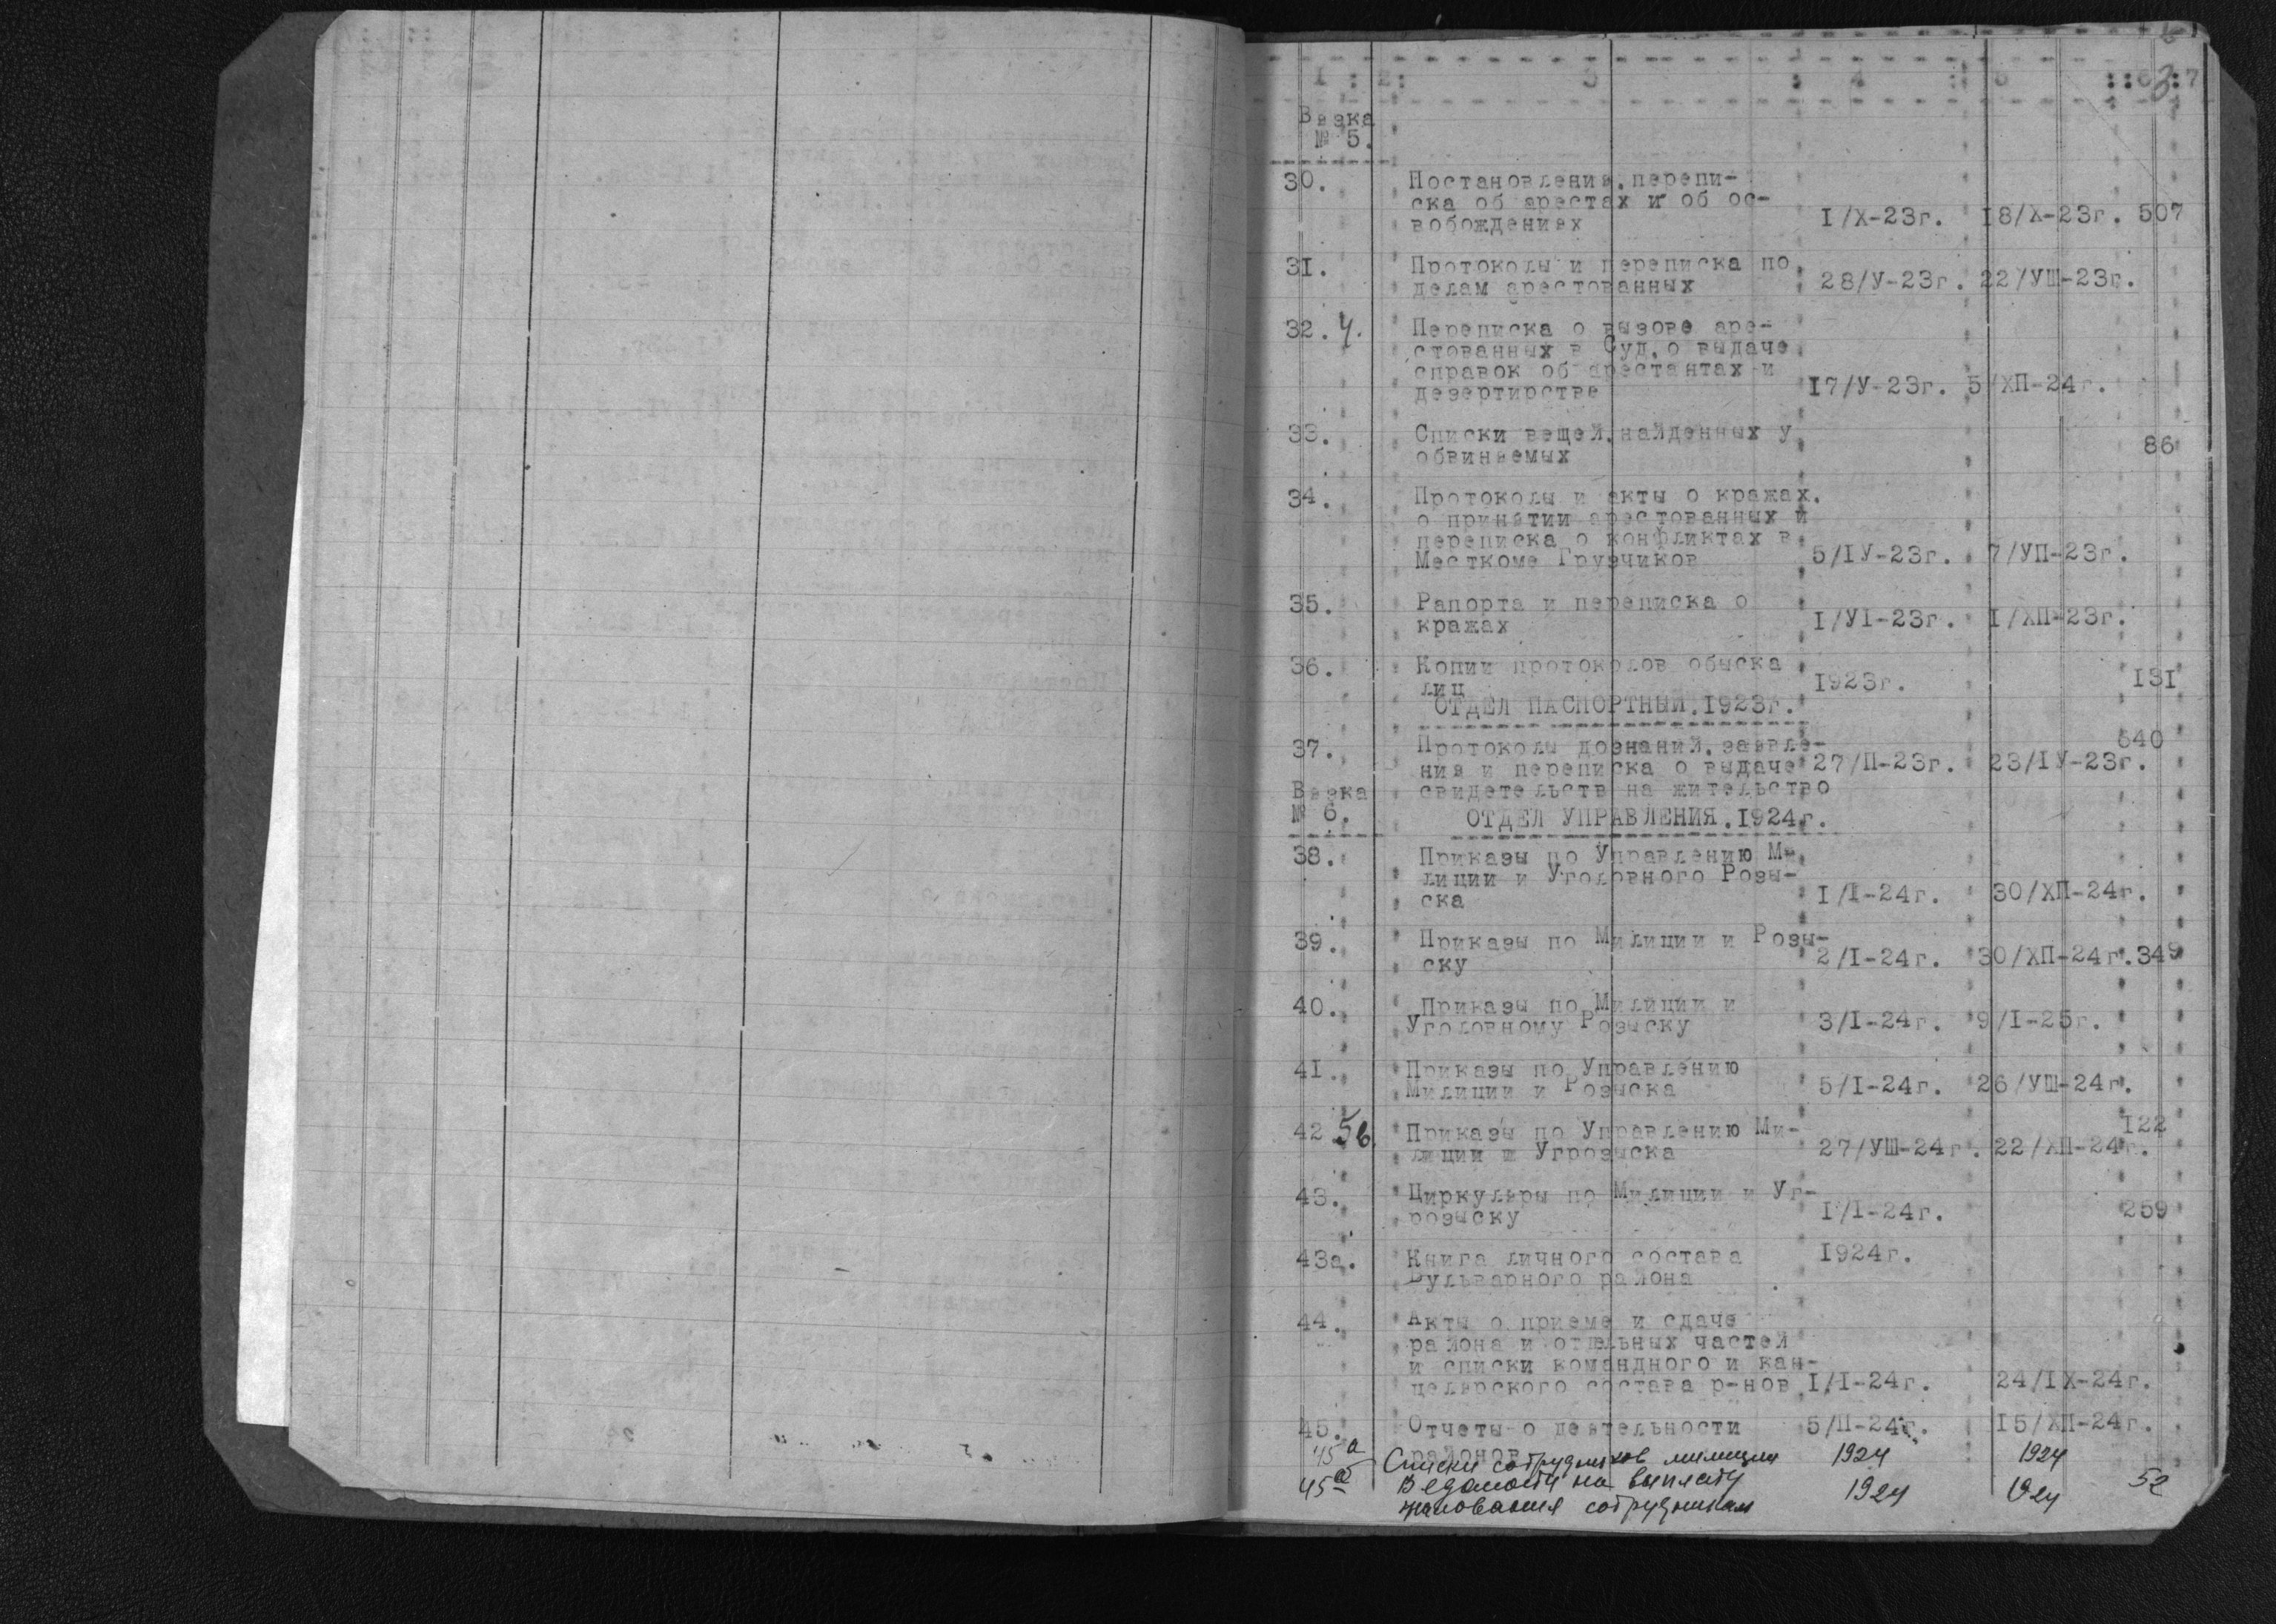 6
1 : 2 : 3 : 4 : 5 : : 6 : 7
3
Вязка
№ 5.
30. Постановления, перепи-
ска об арестах и об ос-
вобождениях 1/X-23г. 18/X-23г. 507
31. Протоколы и переписка по
делам арестованных 28/У-23г. 22/УШ-23г.
32. Ч. Переписка о вызове аре-
стованных в Суд, о выдаче
справок об арестантах и
дезертирстве 17/У-23г. 5/ХП-24г.
33. Списки вещей, найденных у
обвиняемых 86
34. Протоколы и акты о кражах,
о принятии арестованных и
переписка о конфликтах в
Месткоме Грузчиков 5/1У-23г. 7/УП-23г.
35. Рапорта и переписка о
кражах 1/У1-23г. 1/ХП-23г.
36. Копии протоколов обыска
лиц 1923г. 131
ОТДЕЛ ПАСПОРТНЫЙ.1923г.
37. Протоколы дознаний, заявле- 640
ния и переписка о выдаче 27/П-23г. 23/1У-23г.
Вязка свидетельств на жительство
№ 6. ОТДЕЛ УПРАВЛЕНИЯ.1924г.
38. Приказы по Управлению Ми
лиции и Уголовного Розы-
ска 1/I-24г. 30/ХП-24г.
39. Приказы по Милиции и Розы-
ску 2/I-24г. 30/ХП-24г. 349
40. Приказы по Милиции и
Уголовному Розыску 3/I-24г. 9/I-25г.
41. Приказы по Управлению
Милиции и Розыска 5/I-24г. 26/УШ-24г.
42 5в. Приказы по Управлению Ми- 122
лиции и Угрозыска 27/УШ-24г. 22/ХП-24г.
43. Циркуляры по Милиции и Уг-
розыску 1/I-24г. 259
43а. Книга личного состава 1924г.
Бульварного района
44. Акты о приеме и сдаче
района и отдельных частей
и списки командного и кан-
целярского состава р-нов 1/I-24г. 24/IX-24г.
45. Отчеты о деятельности 5/П-24г. 15/ХП-24г.
районов
45а Списки сотрудников милиции 1924 1924
45а Ведомости на выплату 1924 1924 52
жалования сотрудникам